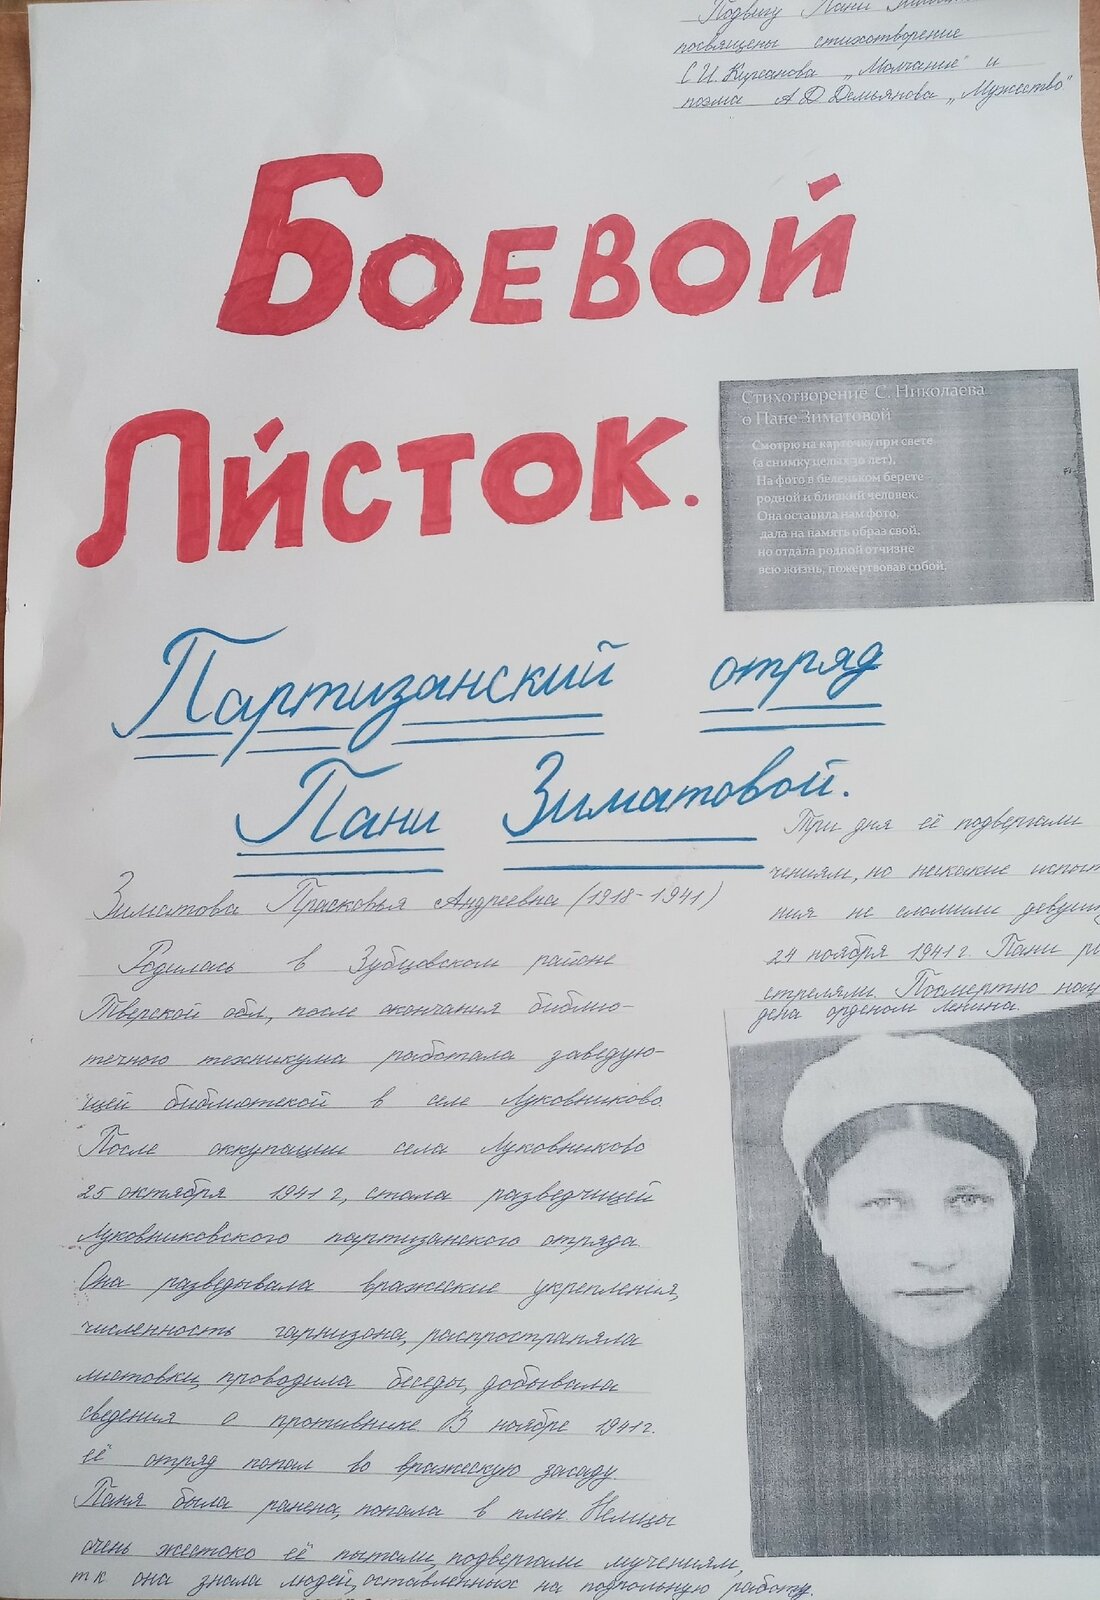 Подвигу Пани
посвящены стихотворение
С И. Кирсанова „Молчание" и
поэма А Д Демьянова „Мужество"
Боевой
Листок.
Стихотворение С. Николаева
о Пане Зиматовой
Смотрю на карточку при свете
(а снимку целых 30 лет),
На фото в беленьком берете -
родной и близкий человек.
Она оставила нам фото,
дала на память образ свой,
но отдала родной отчизне
всю жизнь, пожертвовав собой.
Партизанский отряд
Пани Зиматовой.
Зиматова Прасковья Андреевна (1918-1941)
Родилась в Зубцовском районе
Тверской обл, после окончания библио-
течного техникума работала заведую-
щей библиотекой в селе Луковниково
После оккупации села Луковниково
25 октября 1941 г, стала разведчицей
Луковниковского партизанского отряда
Она разведывала вражеские укрепления,
численность гарнизона, распространяла
листовки, проводила беседы, добывала
сведения о противнике В ноябре 1941г.
её отряд попал во вражескую засаду
Паня была ранена, попала в плен. Немцы
очень жестоко её пытали, подвергали мучениям,
т к она знала людей, оставленных на подпольную работу.
Три дня её подвергали
чениям, но никакие испыт
ния не сломили девушк
24 ноября 1941 г. Пани ра
стреляли. Посмертно наг
дена орденом Ленина.